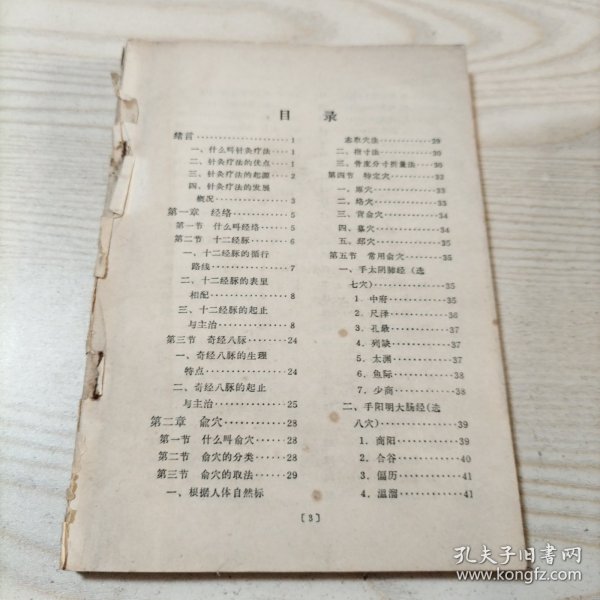 目 录
绪言 1
一、什么叫针灸疗法 1
二、针灸疗法的优点 1
三、针灸疗法的起源 2
四、针灸疗法的发展
概况 3
第一章 经络 5
第一节 什么叫经络 5
第二节 十二经脉 6
一、十二经脉的循行
路线 7
二、十二经脉的表里
相配 8
三、十二经脉的起止
与主治 8
第三节 奇经八脉 24
一、奇经八脉的生理
特点 24
二、奇经八脉的起止
与主治 25
第二章 俞穴 28
第一节 什么叫俞穴 28
第二节 俞穴的分类 28
第三节 俞穴的取法 29
一、根据人体自然标
志取穴法 29
二、指寸法 30
三、骨度分寸折量法 30
第四节 特定穴 32
一、原穴 33
二、络穴 33
三、背俞穴 34
四、募穴 34
五、郄穴 35
第五节 常用俞穴 35
一、手太阴肺经（选
七穴） 35
1．中府 35
2．尺泽 36
3．孔最 37
4．列缺 37
5．太渊 37
6．鱼际 38
7．少商 38
二、手阳明大肠经(选
八穴) 39
1．商阳 39
2．合谷 40
3．偏历 41
4．温溜 41
〔3〕
孔夫子旧书网
www.kongfz.com